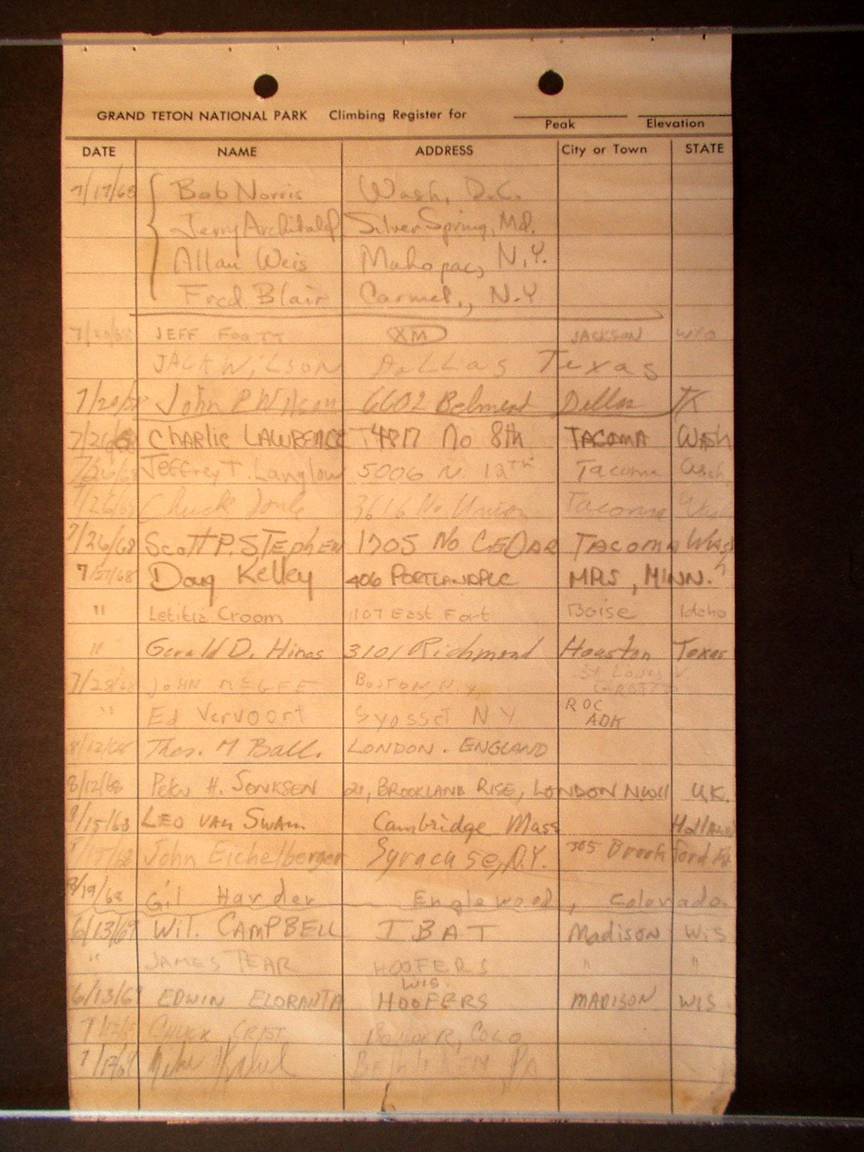 GRAND TETON NATIONAL PARK Climbing Register for
Peak Elevation
DATE NAME ADDRESS City or Town STATE
7/17/68 Bob Norris Wash, D.C.
Jerry Archibald Silver Spring, Md.
Allan Weis Mahopac, N.Y.
Fred Blair Carmel, N.Y
JEFF FOOTT XM JACKSON WYO
JACK WILSON Dallas Texas
7/20/68 John P Wilson 6602 Belmont Dallas TX
7/26/68 Charlie LAWRENCE 4817 No 8th TACOMA Wash
7/26/68 Jeffrey T. Langlow 5006 N. 12th Tacoma Wash
7/26/68 Chuck 3616 No Union Tacoma
7/26/68 Scott P. STEPHEN 1705 No CEDAR TACOMA Wash
7/27/68 Doug Kelley 406 PORTLAND MPLS, MINN.
" Letitia Croom 1107 East Fort Boise Idaho
" Gerald D. Hines 3101 Richmond Houston Texas
7/28/68 JOHN McGEE
" Ed Vervoort Syosset NY ROC
ADK
8/12/68 Thos. M Ball. LONDON. ENGLAND
8/12/68 Peter H. SONKSEN 21, BROOKLAND RISE, LONDON NW11 U.K.
8/15/68 LEO van Swam Cambridge Mass Holland
8/17/68 John Eichelberger Syracuse, N.Y. 305 Brookford Rd
8/19/68 Gil Harder Englewood, Colorado.
6/13/69 Wil. CAMPBELL I BAT Madison Wis
" JAMES TEAR HOOFERS " "
WIS.
6/13/69 EDWIN ELORANTA HOOFERS MADISON WIS
CHUCK CRIST BOULDER, COLO
Mike BETHLEHEM PA